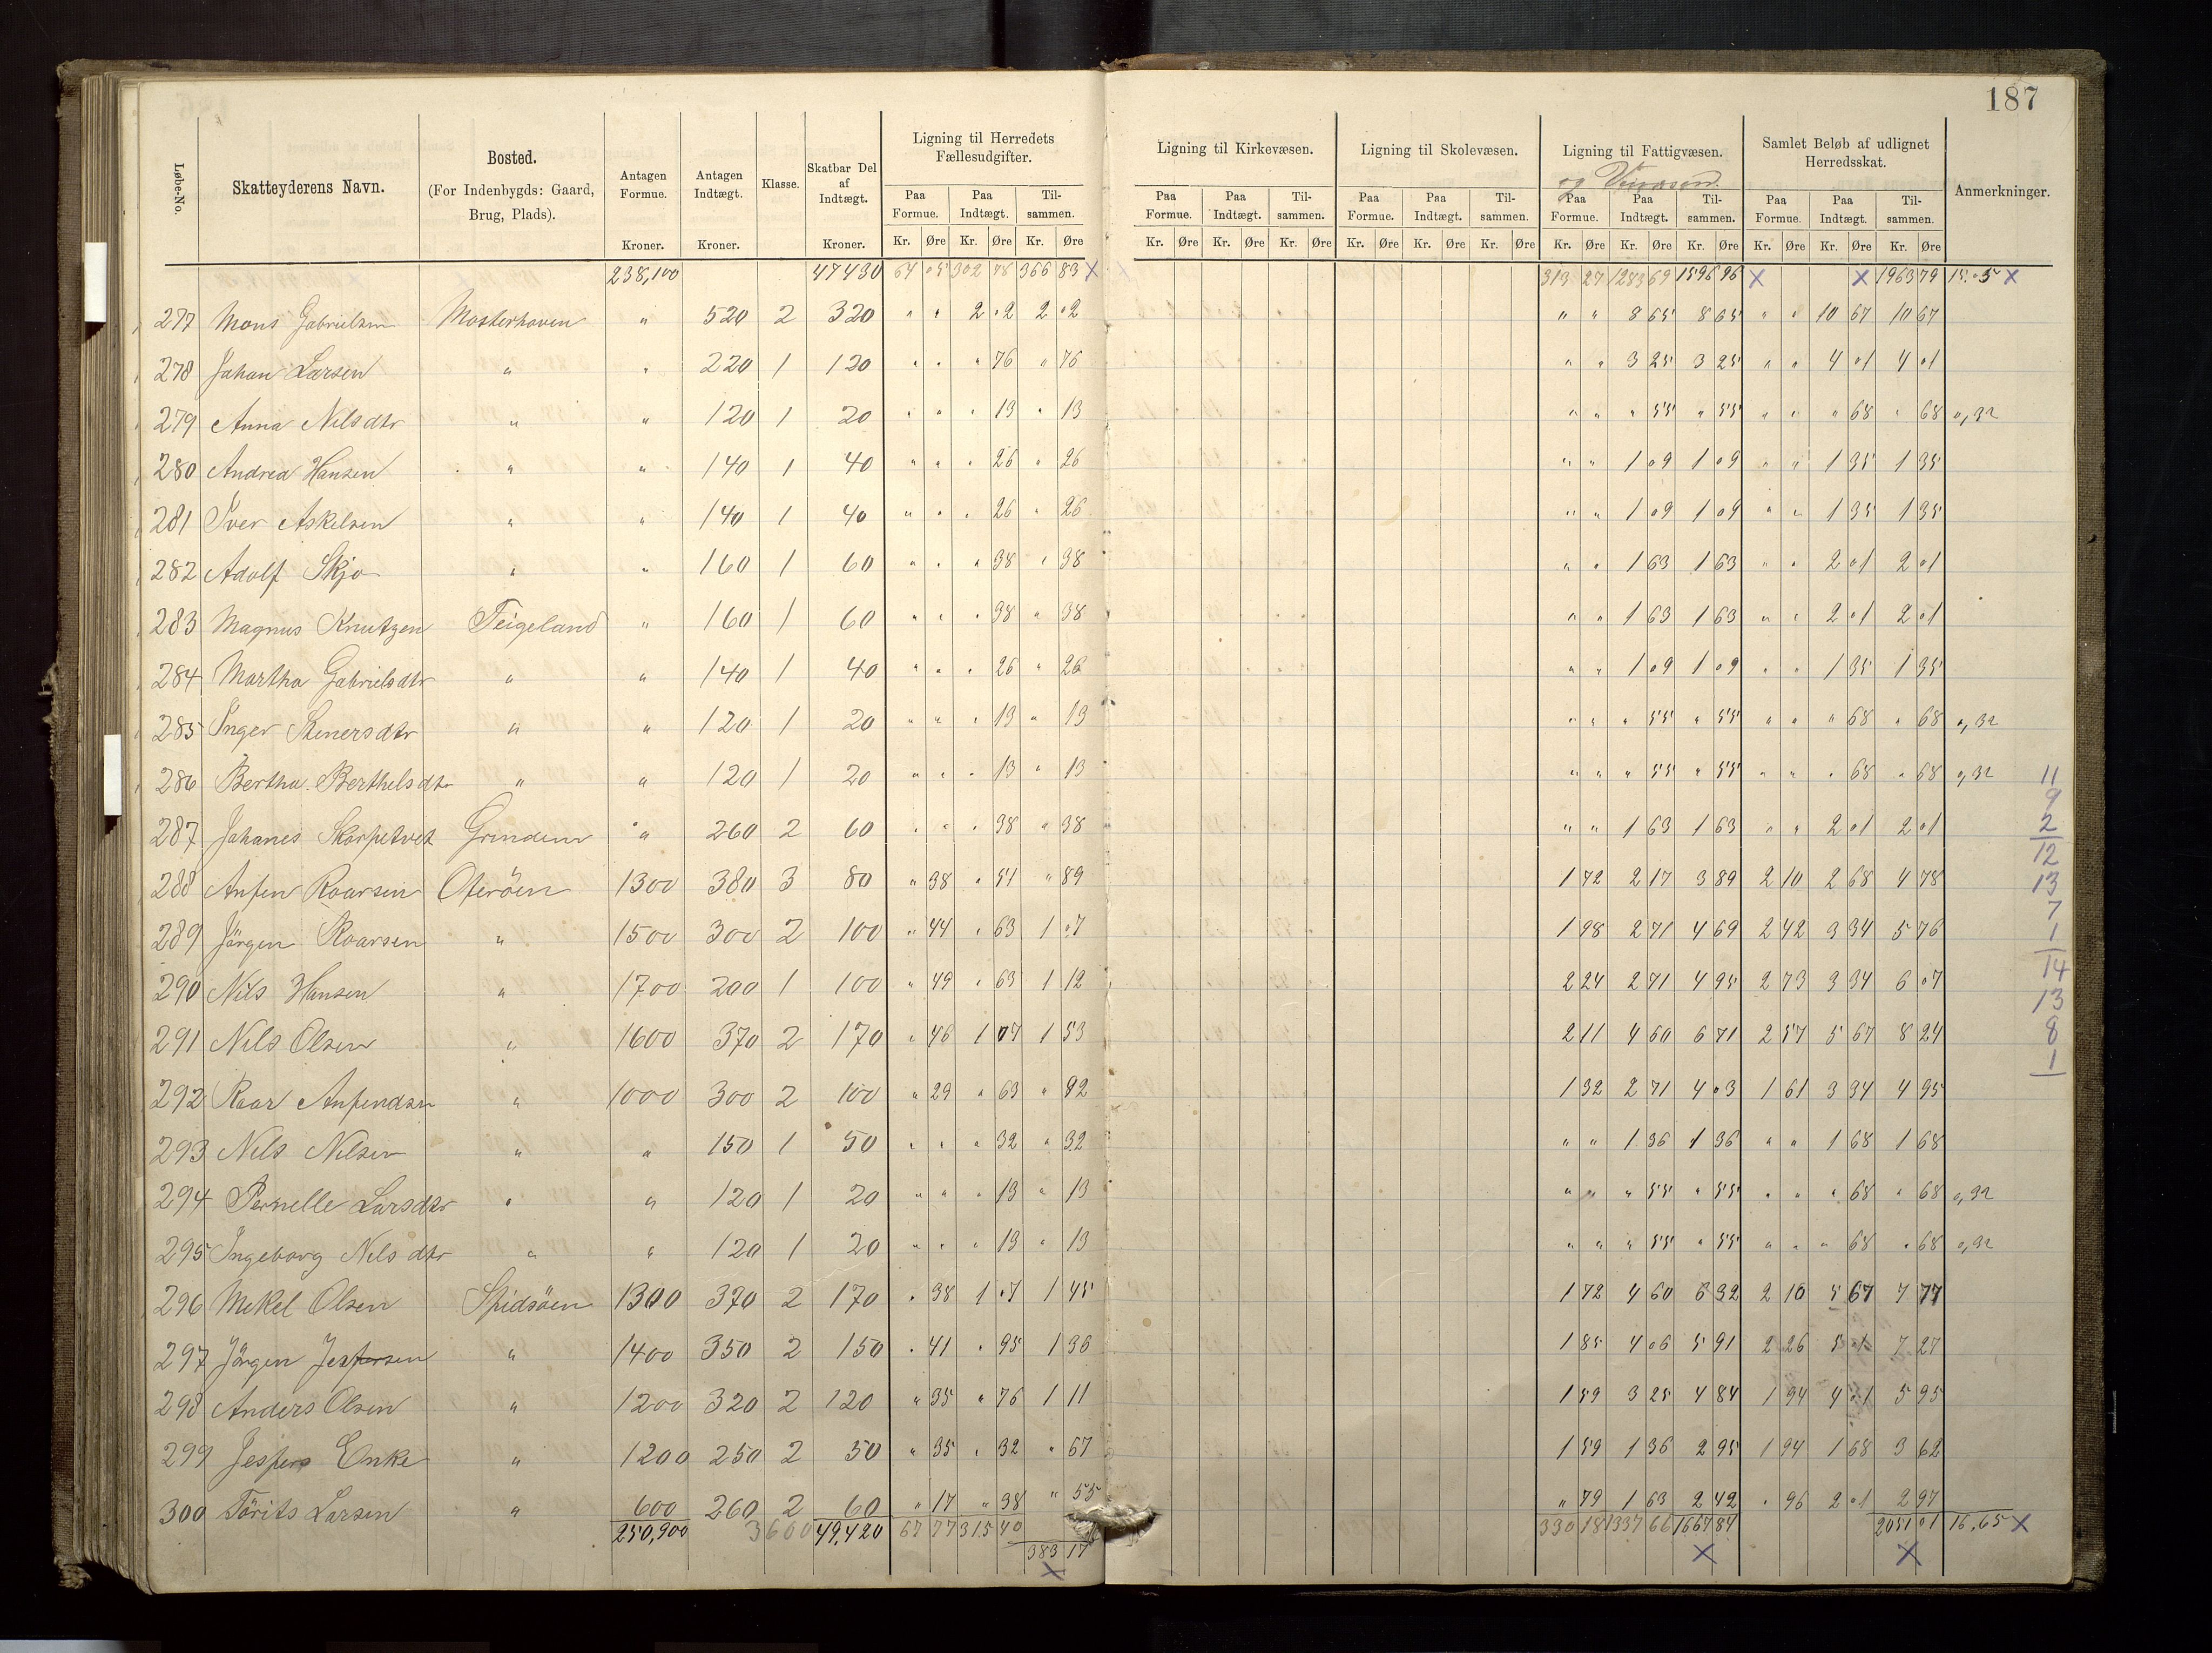 187
Løbe-No. Skatteyderens Navn. Bosted. (For Indenbygds: Gaard, Brug, Plads). Antagen Formue. Kroner. Antagen Indtægt. Kroner. Klasse. Skatbar Del af Indtægt. Kroner. Ligning til Herredets Fællesudgifter. Paa Formue. Kr. Øre Paa Indtægt. Kr. Øre Tilsammen. Kr. Øre Ligning til Kirkevæsen. Paa Formue. Kr. Øre Paa Indtægt. Kr. Øre Tilsammen. Kr. Øre Ligning til Skolevæsen. Paa Formue. Kr. Øre Paa Indtægt. Kr. Øre Tilsammen. Kr. Øre Ligning til Fattigvæsen. og Paa Formue. Kr. Øre Paa Indtægt. Kr. Øre Tilsammen. Kr. Øre Samlet Beløb af udlignet Herredsskat. Paa Formue. Kr. Øre Paa Indtægt. Kr. Øre Tilsammen. Kr. Øre Anmerkninger.
238,100 47430 64 05 302 78 366 83 x 313 27 1283 69 1596 96 x x 1963 79 15.05 x
277 Mons Gabrielsen Mosterhavn " 520 2 320 " " 2 02 2 02 " " 8 65 8 65 " " 10 67 10 67
278 Johan Larsen " " 220 1 120 " " " 76 " 76 " " 3 25 3 25 " " 4 01 4 01
279 Anna Nilsdtr " " 120 1 20 " " " 13 " 13 " " " 55 " 55 " " " 68 " 68 0,32
280 Andrea Hansen " " 140 1 40 " " " 26 " 26 " " 1 09 1 09 " " 1 35 1 35
281 Iver Askelsen " " 140 1 40 " " " 26 " 26 " " 1 09 1 09 " " 1 35 1 35
282 Adolf Skjo " " 160 1 60 " " " 38 " 38 " " 1 63 1 63 " " 2 01 2 01
283 Magnus Knutzen Teigeland " 160 1 60 " " " 38 " 38 " " 1 63 1 63 " " 2 01 2 01
284 Martha Gabrielsdtr " " 140 1 40 " " " 26 " 26 " " 1 09 1 09 " " 1 35 1 35
285 Inger Stenersdtr " " 120 1 20 " " " 13 " 13 " " " 55 " 55 " " " 68 " 68 0,32
286 Bertha Berthelsdtr " " 120 1 20 " " " 13 " 13 " " " 55 " 55 " " " 68 " 68 0,32 11
9
287 Johanes Skarpetvet Grindem " 260 2 60 " " " 38 " 38 " " 1 63 1 63 " " 2 01 2 01 2
12
288 Anfen Roarsen Oteröen 1300 380 3 80 " 38 " 51 " 89 1 72 2 17 3 89 2 10 2 68 4 78 13
7
289 Jörgen Roarsen " 1500 300 2 100 " 44 " 63 1 07 1 98 2 71 4 69 2 42 3 34 5 76 1
14
290 Nils Hansen " 1700 200 1 100 " 49 " 63 1 12 2 24 2 71 4 95 2 73 3 34 6 07 13
291 Nils Olsen " 1600 370 2 170 " 46 1 07 1 53 2 11 4 60 6 71 2 57 5 67 8 24 8
1
292 Roar Anfendsen " 1000 300 2 100 " 29 " 63 " 92 1 32 2 71 4 03 1 61 3 34 4 95
293 Nils Nilsen " " 150 1 50 " " " 32 " 32 " " 1 36 1 36 " " 1 68 1 68
294 Pernelle Larsdtr " " 120 1 20 " " " 13 " 13 " " " 55 " 55 " " " 68 " 68 0,32
295 Ingeborg Nilsdtr " " 120 1 20 " " " 13 " 13 " " " 55 " 55 " " " 68 " 68 0,32
296 Mikel Olsen Spidsöen 1300 370 2 170 " 38 1 07 1 45 1 72 4 60 6 32 2 10 5 67 7 77
297 Jörgen Jespersen " 1400 350 2 150 " 41 " 95 1 36 1 85 4 06 5 91 2 26 5 01 7 27
298 Anders Olsen " 1200 320 2 120 " 35 " 76 1 11 1 59 3 25 4 84 1 94 4 01 5 95
299 Jesper Enke " 1200 250 2 50 " 35 " 32 " 67 1 59 1 36 2 95 1 94 1 68 3 62
300 Törits Larsen " 600 260 2 60 " 17 " 38 " 55 " 79 1 63 2 42 " 96 2 01 2 97
250,900 3600 49,420 67 77 315 40 330 18 1337 66 1667 84 2051 01 16.65 x
383 17 x x
x